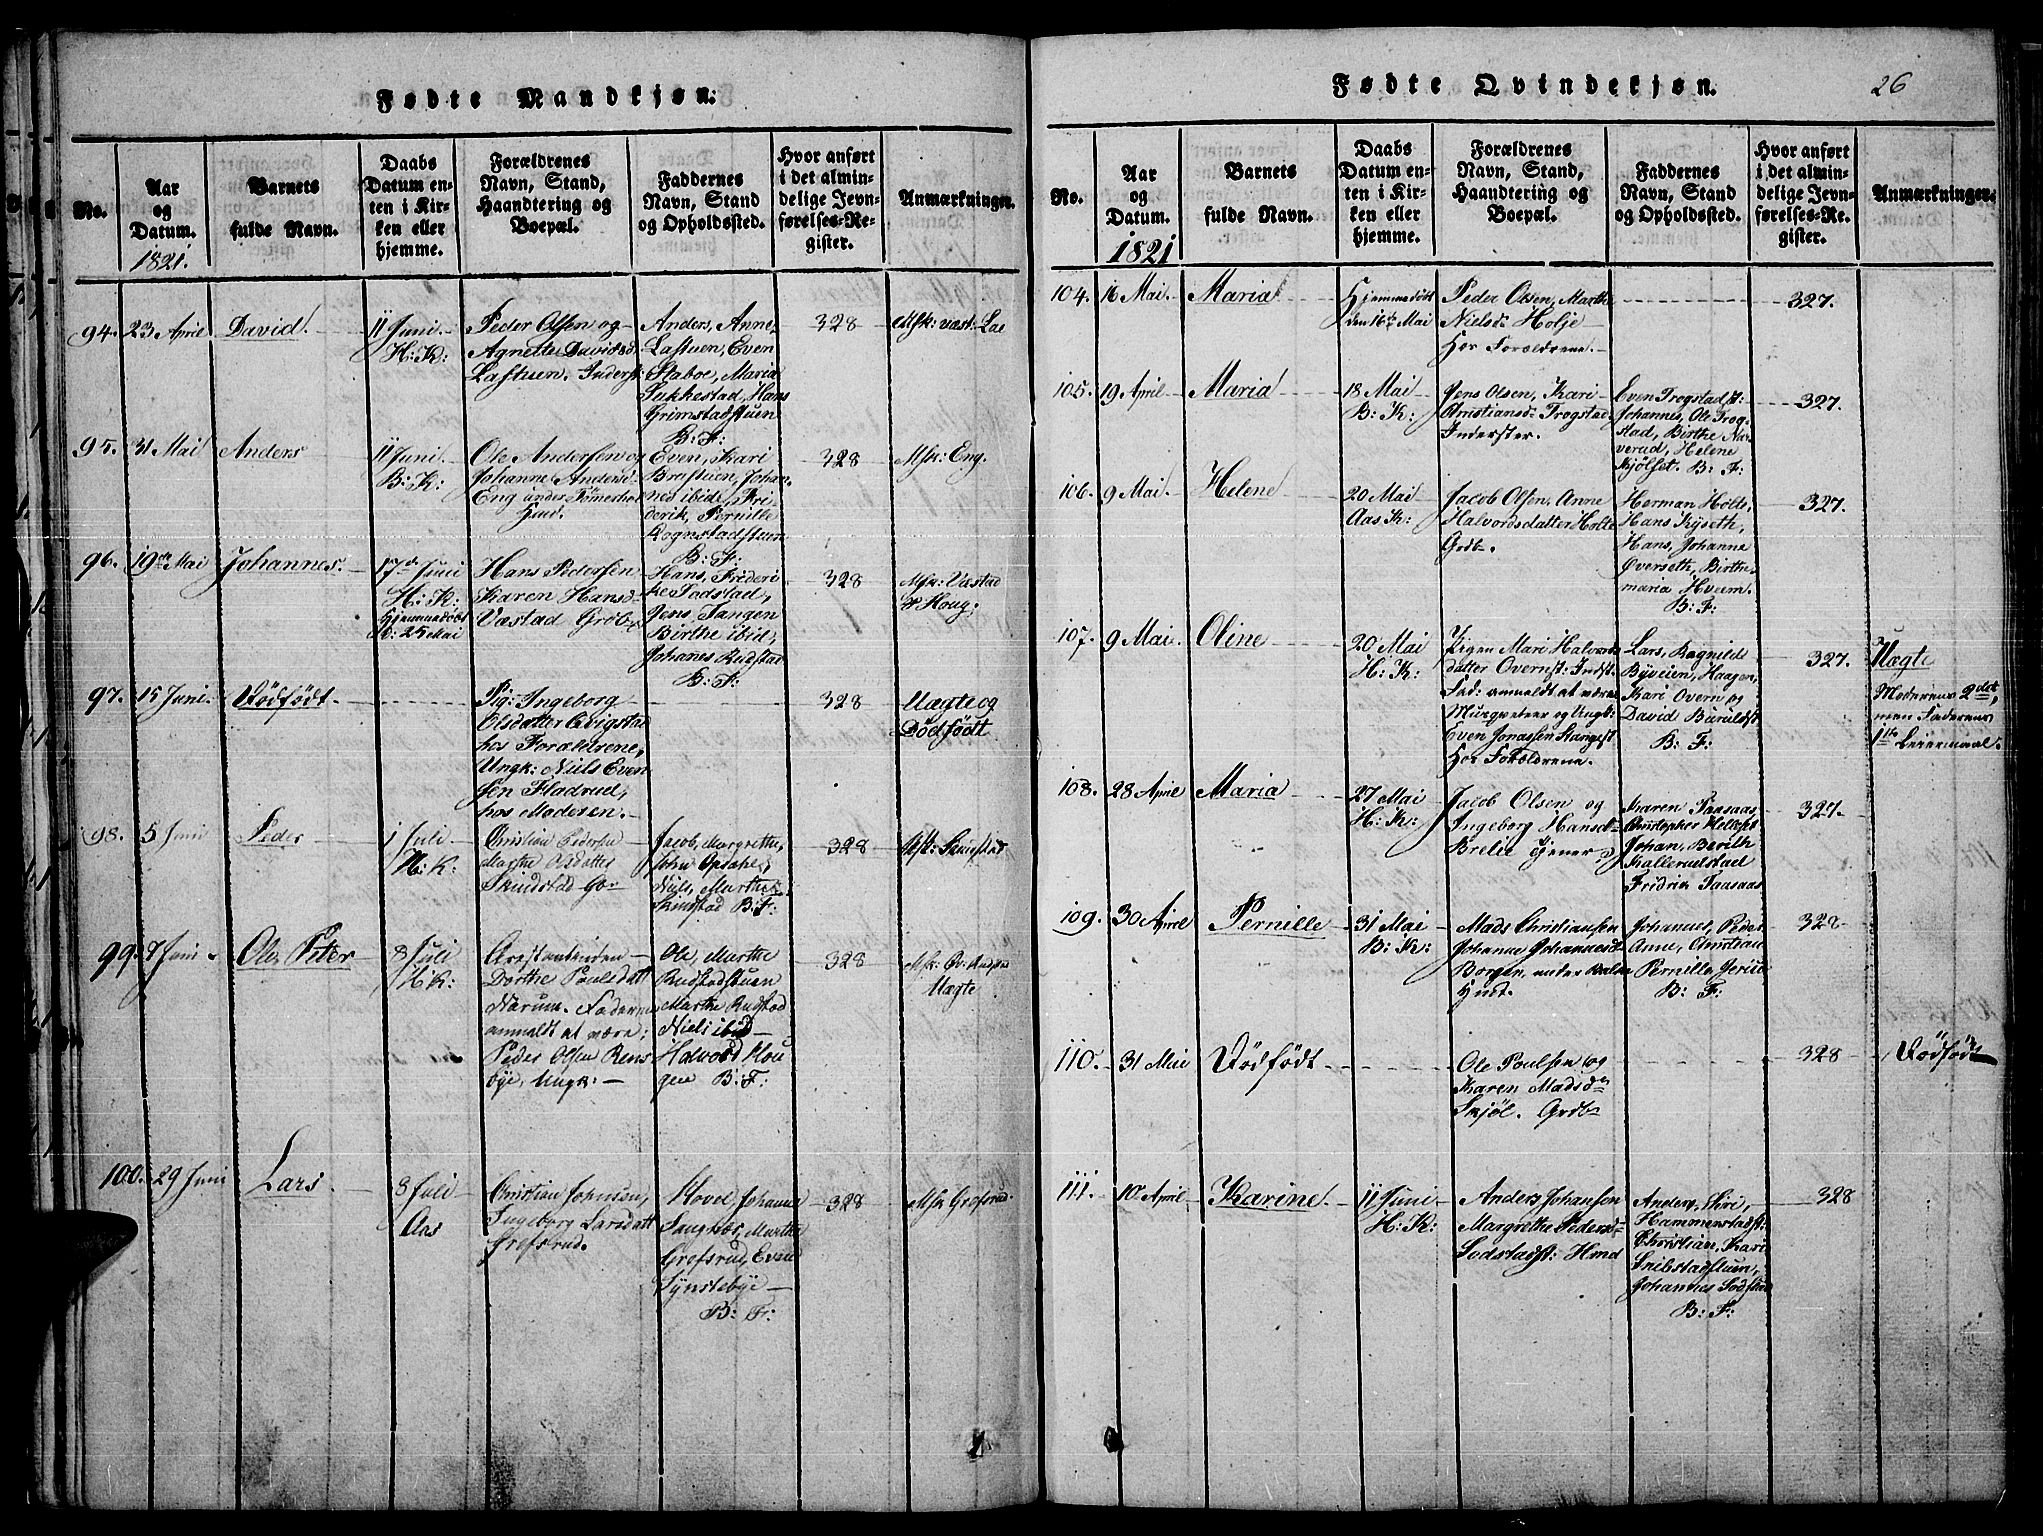 Fødte Mandkjøn.
No.
Aar
og
Datum.
1821.
Barnets
fulde Navn.
Daabs
Datum en-
ten i Kir-
ken eller
hjemme.
Forældrenes
Navn, Stand,
Haandtering og
Boepæl.
Faddernes
Navn, Stand
og Opholdssted.
Hvor anført
i det almin-
delige Jevn-
førelses-Re-
gister.
Anmærkninger.
94. 23 April
David.
11 Juni.
H: K:
Peder Olsen og
Agnette Davidsd.
Lastuen. Inderst
Anders, Anne,
Lastuen, Even
Staboe, Maria
Sukkestad, Hans
Grimstadstuen
B: F:
328
Msk: væst: Lae
95. 31 Mai
Anders
11 Juni
B: K:
Ole Andersen og
Johanne Andersd
Eng under
Hmd.
Even, Kari
Brostuen, Johan-
nes ibid, Fri-
derik, Pernille
Rognstadstuen
B: F:
328
Msk: Eng.
96. 19de Mai
Johannes.
17de Juni
H: K:
Hjemmedøbt
25 Mai
Hans Pedersen
Karen Hansd-
Væstad Grdb
Hans, Frideri-
ke Sodstad,
Jens Tangen
Birthe ibid,
Johanes Rudstad
B: F:
328
Msk: Væstad
v Houg.
97. 15 Juni.
Dödfödt.
Pig: Ingeborg
Olsdatter
hos Forældrene,
Ungk: Niels Even-
sen Fladrud,
hos Moderen.
328
Uægte og
Dödfödt
98. 5 Juni
Peder
1 Juli
N: K:
Christian Pedersen
Marthe Olsdatter
Skindstad
Jacob, Margrethe,
John Opdahl,
Niels, Marthe
Skindstad B: F:
328
Msk: Skindstad
99. 7 Juni
Ole Peter
8 Juli
N K:
Arrestantinden
Dorthe Poulsdatt
Narum. Faderen
anmeldt at være
Peder Olsen Rens-
bye, Ungk:
Ole, Marthe
Rudstadstuen
Marthe Rudstad
Niels ibid
Halvord Hou-
gen B: F:
328
Uægte
100. 29 Juni
Lars
8 Juli
Aas
Christian Johnsen,
Ingeborg Larsdatt
Grefsrud.
Hovel Johanna
Sangnæs, Marthe
Grefsrud, Even
Synstebye
B: F:
328
Msk Grefsrud
Fødte Qvindekjøn.
26
No.
Aar
og
Datum.
1821
Barnets
fulde Navn.
Daabs
Datum en-
ten i Kir-
ken eller
hjemme.
Forældrenes
Navn, Stand,
Haandtering og
Boepæl.
Faddernes
Navn, Stand
og Opholdssted.
Hvor anført
i det almin-
delige Jevn-
førelses-Re-
gister.
Anmærkninger.
104. 16 Mai.
Maria
Hjemmedöbt
den 16de Mai
Peder Olsen, Marthe
Nielsd. Holje
Hos Forældrene.
327.
105. 19 April
Maria
18 Mai
B: K:
Jens Olsen, Kari
Christiansd. Trogstad
Inderster.
Even Trogstadst:
Johannes, Ole Trog-
stad, Birthe Nar-
verud, Helene
Kjölset. B: F:
327.
106. 9 Mai.
Helene
20 Mai
Aas K:
Jacob Olsen, Anne
Halvordsdatter Holte
Grdb.
Herman Holte,
Hans Kyseth,
Hans, Johanne
Overseth, Birthe-
maria Hveem.
B: F:
327.
107. 9 Mai.
Oline
20 Mai
H: K:
Pigen Mari Halvords-
datter Overnst: Indst.
Fad: anmeldt at være
Murqveteer og Ungk:
Even Jonassen Stangest
Hos Forældrene.
Lars, Ragnild
Byveien, Haagen,
Kari Overn og
David Buruldst
B: F:
327.
Uægte
Moderens 2det,
men Faderens
1ste Leiermaal.
108. 28 April
Maria
27 Mai
H: K:
Jacob Olsen og
Ingeborg Hansd
Brelie
Karen Paasaas,
Christopher Helleset
Johan, Berith
Kallerudstad
Fridrik Paasaas
327.
109. 30 April
Pernille
31 Mai
B: K:
Mads Christiansen
Johanne Johannesd
Borgen, under
Hmd.
Johannes, Peder
Anne, Christian
Pernille
B: F:
328
110. 31 Mai
Dödfödt
Ole Poulsen og
Karen Madsd
Skjöl. Grdb
328
Dödfödt
111. 10 April
Karine.
11 Juni
H: K:
Anders Johansen
Margrethe Pedersd
Sodstadst: Hmd
Anders, Siri,
Hammenstadst:
Christian, Kari
Snibstadstuen,
Johannes Sodstad
B: F:
328